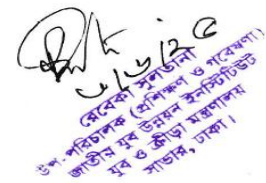 ৩/৬/২৫
রেবেকা সুলতানা
উপ-পরিচালক (প্রশিক্ষণ ও গবেষণা)
জাতীয় যুব উন্নয়ন ইনস্টিটিউট
যুব ও ক্রীড়া মন্ত্রণালয়
সাভার, ঢাকা।